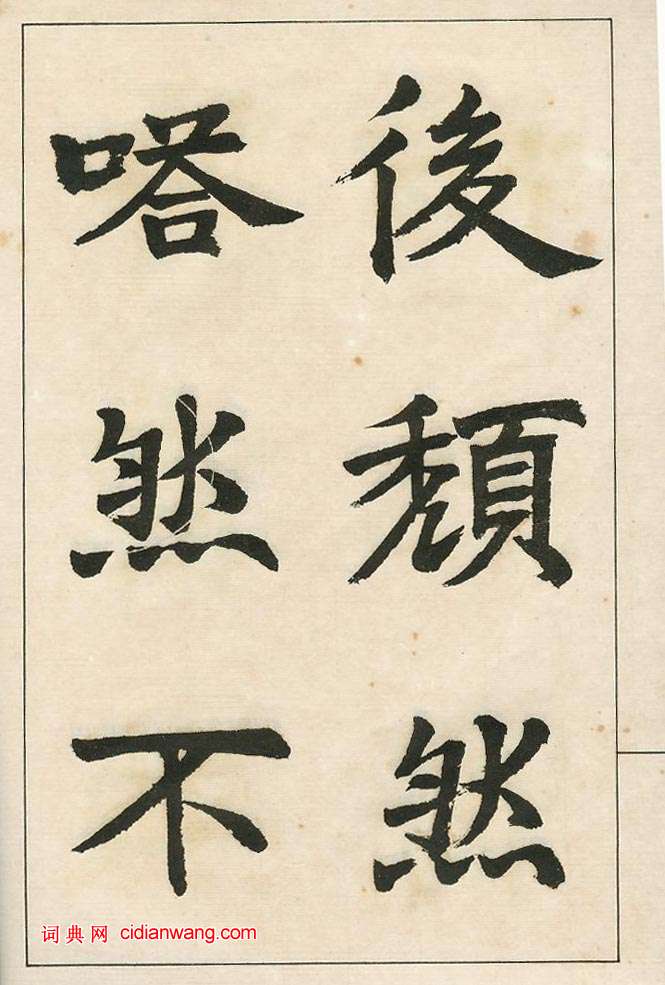 後頹然
嗒然不
词典网 cidianwang.com